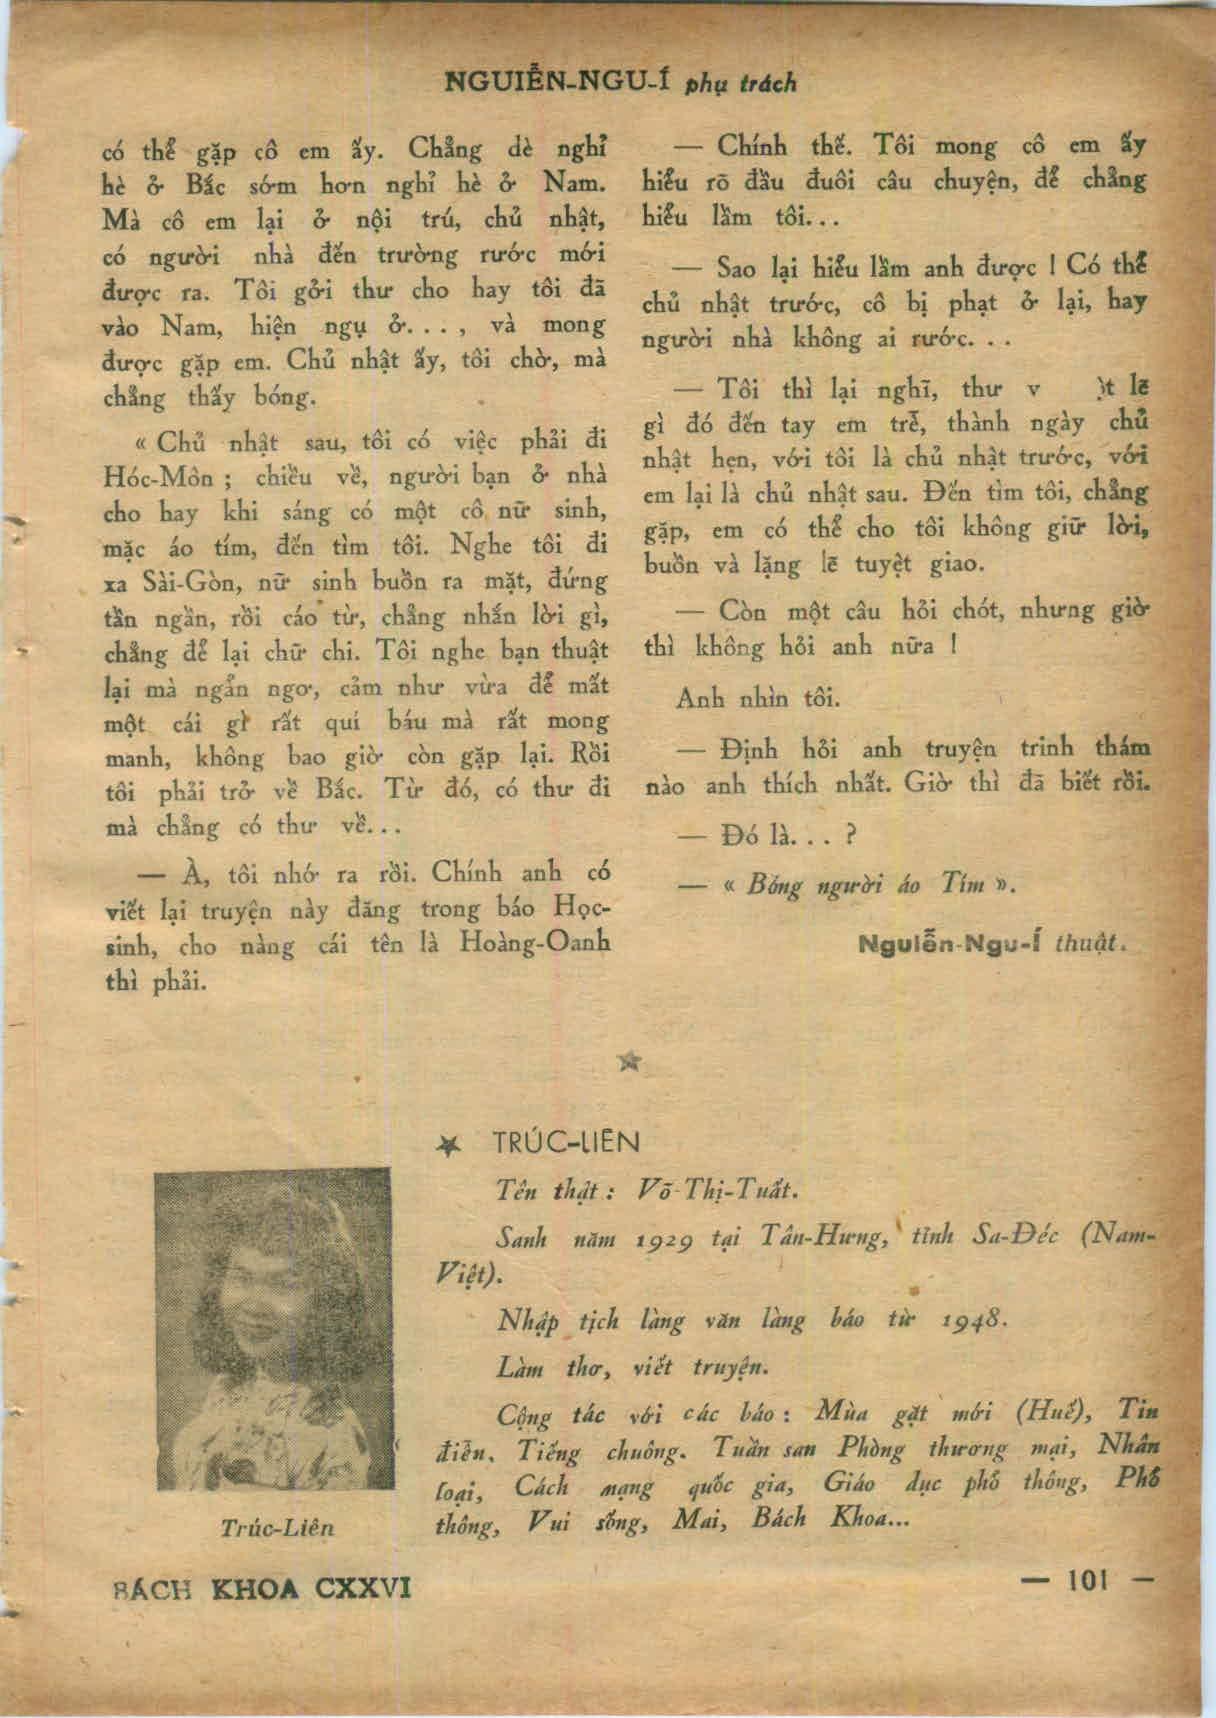 NGUIỄN-NGU-Í phụ trách
có thể gặp cô em ấy. Chẳng dè nghỉ
hè ở Bắc sớm hơn nghỉ hè ở Nam.
Mà cô em lại ở nội trú, chủ nhật,
có người nhà đến trường rước mới
được ra. Tôi gởi thư cho hay tôi đã
vào Nam, hiện ngụ ở..., và mong
được gặp em. Chủ nhật ấy, tôi chờ, mà
chẳng thấy bóng.
« Chủ nhật sau, tôi có việc phải đi
Hóc-Môn ; chiều về, người bạn ở nhà
cho hay khi sáng có một cô nữ sinh,
mặc áo tím, đến tìm tôi. Nghe tôi đi
xa Sài-Gòn, nữ sinh buồn ra mặt, đứng
tần ngần, rồi cáo từ, chẳng nhắn lời gì,
chẳng để lại chữ chi. Tôi nghe bạn thuật
lại mà ngẩn ngơ, cảm như vừa để mất
một cái gì rất quí báu mà rất mong
manh, không bao giờ còn gặp lại. Rồi
tôi phải trở về Bắc. Từ đó, có thư đi
mà chẳng có thư về...
— À, tôi nhớ ra rồi. Chính anh có
viết lại truyện này đăng trong báo Học-
sinh, cho nàng cái tên là Hoàng-Oanh
thì phải.
— Chính thế. Tôi mong cô em ấy
hiểu rõ đầu đuôi câu chuyện, để chẳng
hiểu lầm tôi...
— Sao lại hiểu lầm anh được ! Có thể
chủ nhật trước, cô bị phạt ở lại, hay
người nhà không ai rước...
— Tôi thì lại nghĩ, thư lẽ
gì đó đến tay em trễ, thành ngày chủ
nhật hẹn, với tôi là chủ nhật trước, với
em lại là chủ nhật sau. Đến tìm tôi, chẳng
gặp, em có thể cho tôi không giữ lời,
buồn và lặng lẽ tuyệt giao.
— Còn một câu hỏi chót, nhưng giờ
thì không hỏi anh nữa !
Anh nhìn tôi.
— Định hỏi anh truyện trinh thám
nào anh thích nhất. Giờ thì đã biết rồi.
— Đó là... ?
— « Bóng người áo Tím ».
Nguiễn-Ngu-Í thuật.
★ TRÚC-LIÊN
Tên thật : Võ-Thị-Tuất.
Sanh năm 1929 tại Tân-Hưng, tỉnh Sa-Đéc (Nam-
Việt).
Nhập tịch làng văn làng báo từ 1948.
Làm thơ, viết truyện.
Cộng tác với các báo : Mùa gặt mới (Huế), Tin
điện, Tiếng chuông. Tuần san Phòng thương mại, Nhân
loại, Cách mạng quốc gia, Giáo dục phổ thông, Phổ
thông, Vui sống, Mai, Bách Khoa...
Trúc-Liên
BÁCH KHOA CXXVI
— 101 —